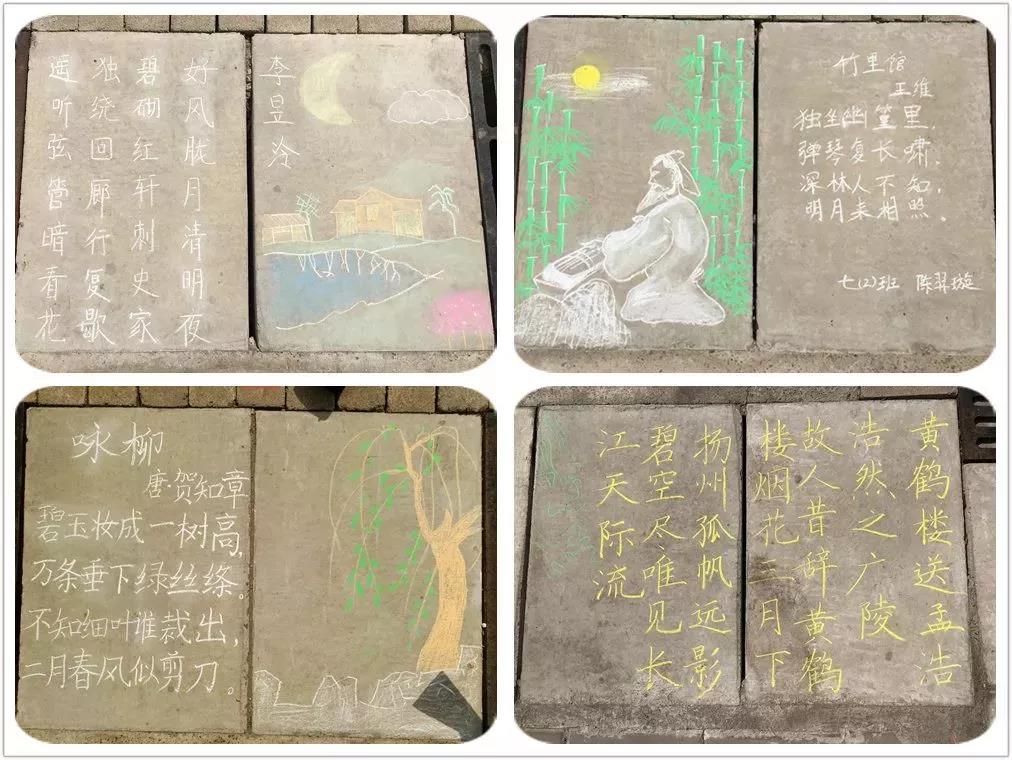 李昱泠
好风胧月清明夜
碧砌红轩刺史家
独绕回廊行复歇
遥听弦管暗看花
竹里馆
王维
独坐幽篁里，
弹琴复长啸。
深林人不知，
明月来相照。
七(2)班 陈羿璇
咏柳
唐·贺知章
碧玉妆成一树高，
万条垂下绿丝绦。
不知细叶谁裁出，
二月春风似剪刀。
黄鹤楼送孟浩
浩然之广陵
故人昔辞黄鹤
楼烟花三月下
扬州孤帆远影
碧空尽唯见长
江天际流